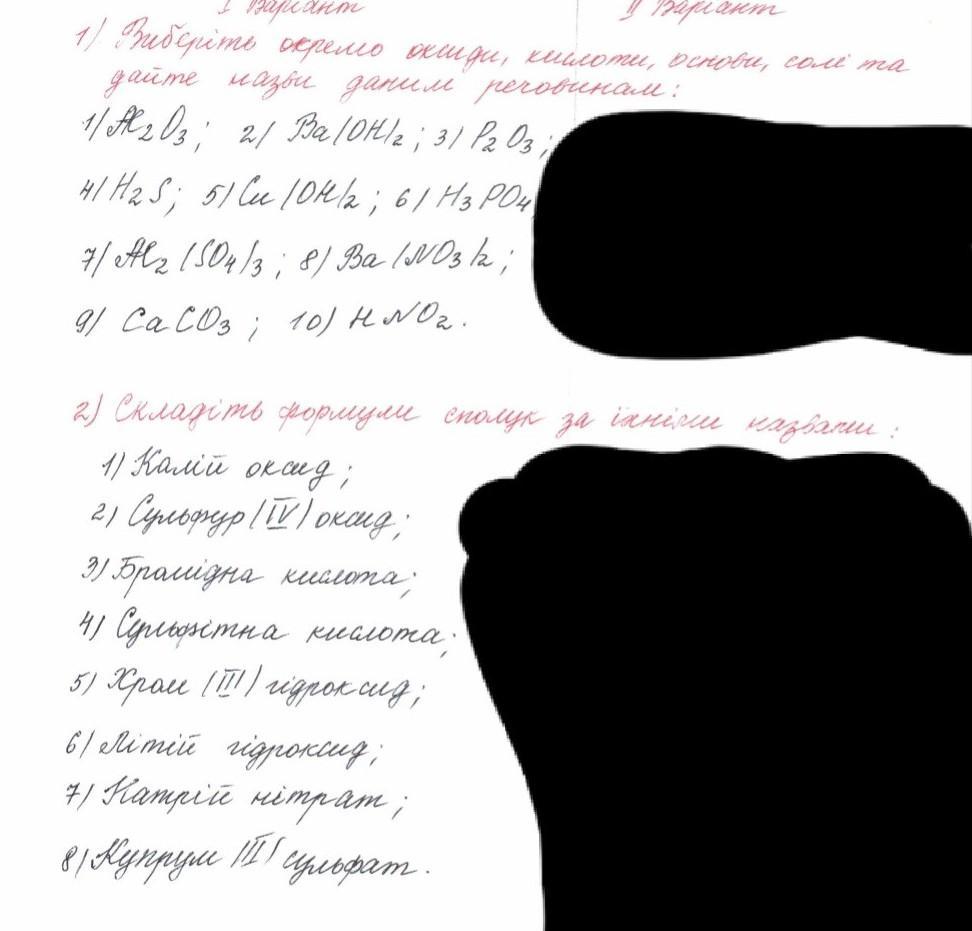 I Варіант II Варіант
1) Виберіть окремо оксиди, кислоти, основи, солі та
дайте назви даним речовинам:
1) Al2O3; 2) Ba(OH)2; 3) P2O3;
4) H2S; 5) Cu(OH)2; 6) H3PO4
7) Al2(SO4)3; 8) Ba(NO3)2;
9) CaCO3; 10) HNO2.
2) Складіть формули сполук за їхніми назвами:
1) Калій оксид;
2) Сульфур(IV)оксид;
3) Бромідна кислота;
4) Сульфітна кислота;
5) Хром (III) гідроксид;
6) Літій гідроксид;
7) Натрій нітрат;
8) Купрум (II) сульфат.